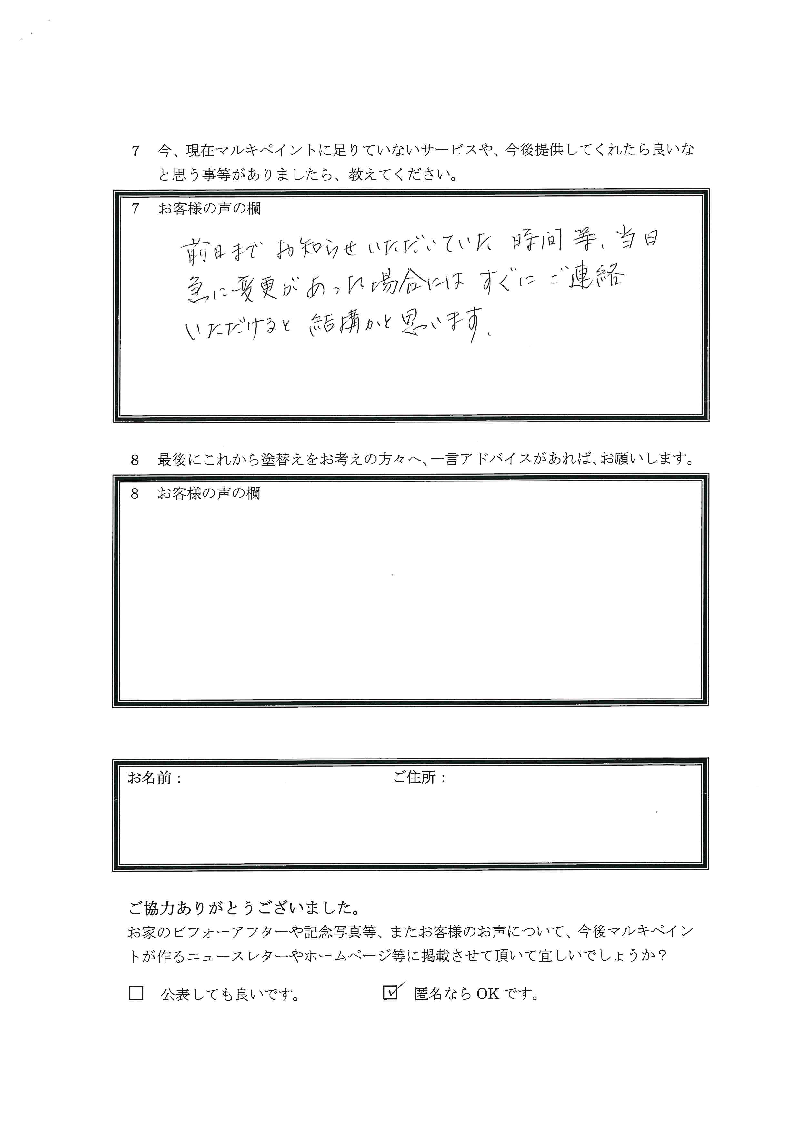 7　今、現在マルキペイントに足りていないサービスや、今後提供してくれたら良いな
と思う事等がありましたら、教えてください。
7　お客様の声の欄
前日まで お知らせいただいていた 時間等、当日
急に変更があった場合には すぐに ご連絡
いただけると 結構かと思います。
8　最後にこれから塗替えをお考えの方々へ、一言アドバイスがあれば、お願いします。
8　お客様の声の欄
お名前：　ご住所：
ご協力ありがとうございました。
お家のビフォーアフターや記念写真等、またお客様のお声について、今後マルキペイン
トが作るニュースレターやホームページ等に掲載させて頂いて宜しいでしょうか？
□　公表しても良いです。　☑　匿名なら OK です。